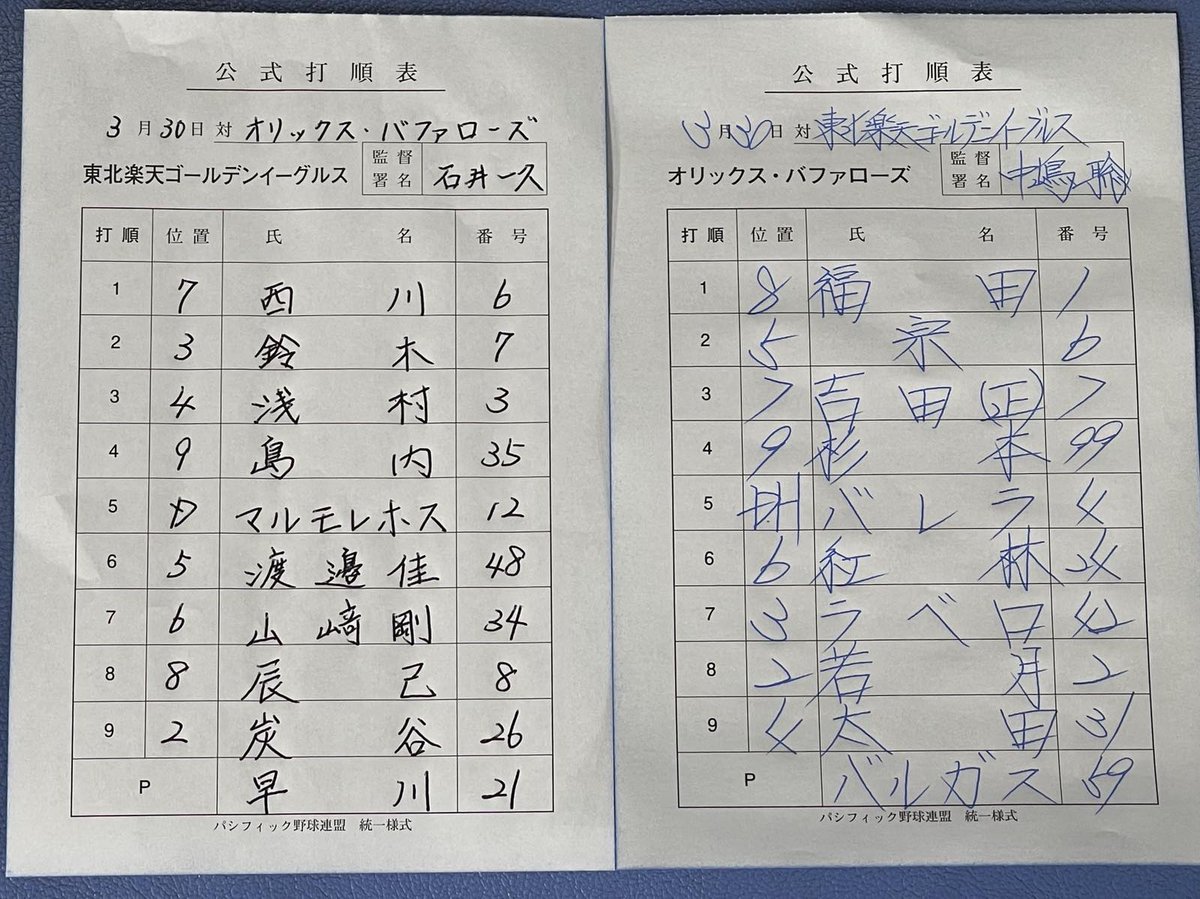 公式打順表
3月30日対 オリックス・バファローズ
東北楽天ゴールデンイーグルス 監督署名 石井一久
打順 位置 氏名 番号
1 7 西川 6
2 3 鈴木 7
3 4 浅村 3
4 9 島内 35
5 D マルモレホス 12
6 5 渡邊佳 48
7 6 山﨑剛 34
8 8 辰己 8
9 2 炭谷 26
P 早川 21
パシフィック野球連盟 統一様式
公式打順表
3月30日対 東北楽天ゴールデンイーグルス
オリックス・バファローズ 監督署名 中嶋聡
打順 位置 氏名 番号
1 8 福田 1
2 5 宗 6
3 7 吉田(正) 7
4 9 杉本 99
5 DH バレラ 4
6 6 紅林 24
7 3 ラベロ 42
8 2 若月 2
9 4 太田 31
P バルガス 59
パシフィック野球連盟 統一様式